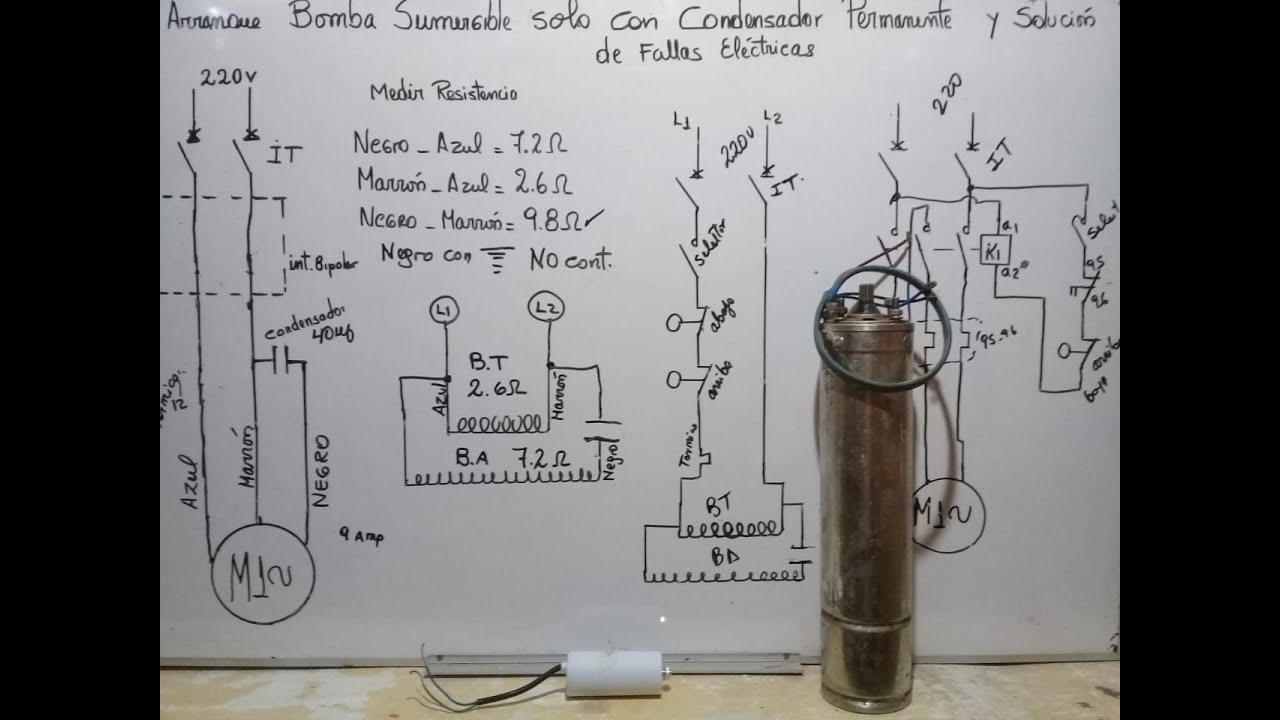 Arranque Bomba Sumergible solo con Condensador Permanente y Solución
de Fallas Eléctricas
220v
IT
int. Bipolar
condensador
40uf
Azul
Marrón
NEGRO
M1~
9 Amp
Medir Resistencia
Negro - Azul = 7.2Ω
Marrón - Azul = 2.6Ω
Negro - Marrón = 9.8Ω ✓
Negro con ⏚ NO cont.
L1
L2
B.T
2.6Ω
Azul
Marrón
B.A 7.2Ω
Negro
L1
L2
220v
IT.
selector
abajo
arriba
Termico
BT
BA
220
IT
a1
K1
a2
95
96
95-96
arriba
M1~